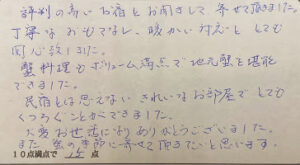 評判の高いお宿とお聞きして寄せて頂きました。
丁寧なおもてなし、暖かい対応とても
関心致しました。
蟹料理もボリューム満点で地元蟹を堪能
できました。
民宿とは思えないきれいなお部屋でとても
くつろぐことができました。
大変お世話になりありがとうございました。
また蟹の季節に寄せて頂きたいと思います。
10点満点で 点